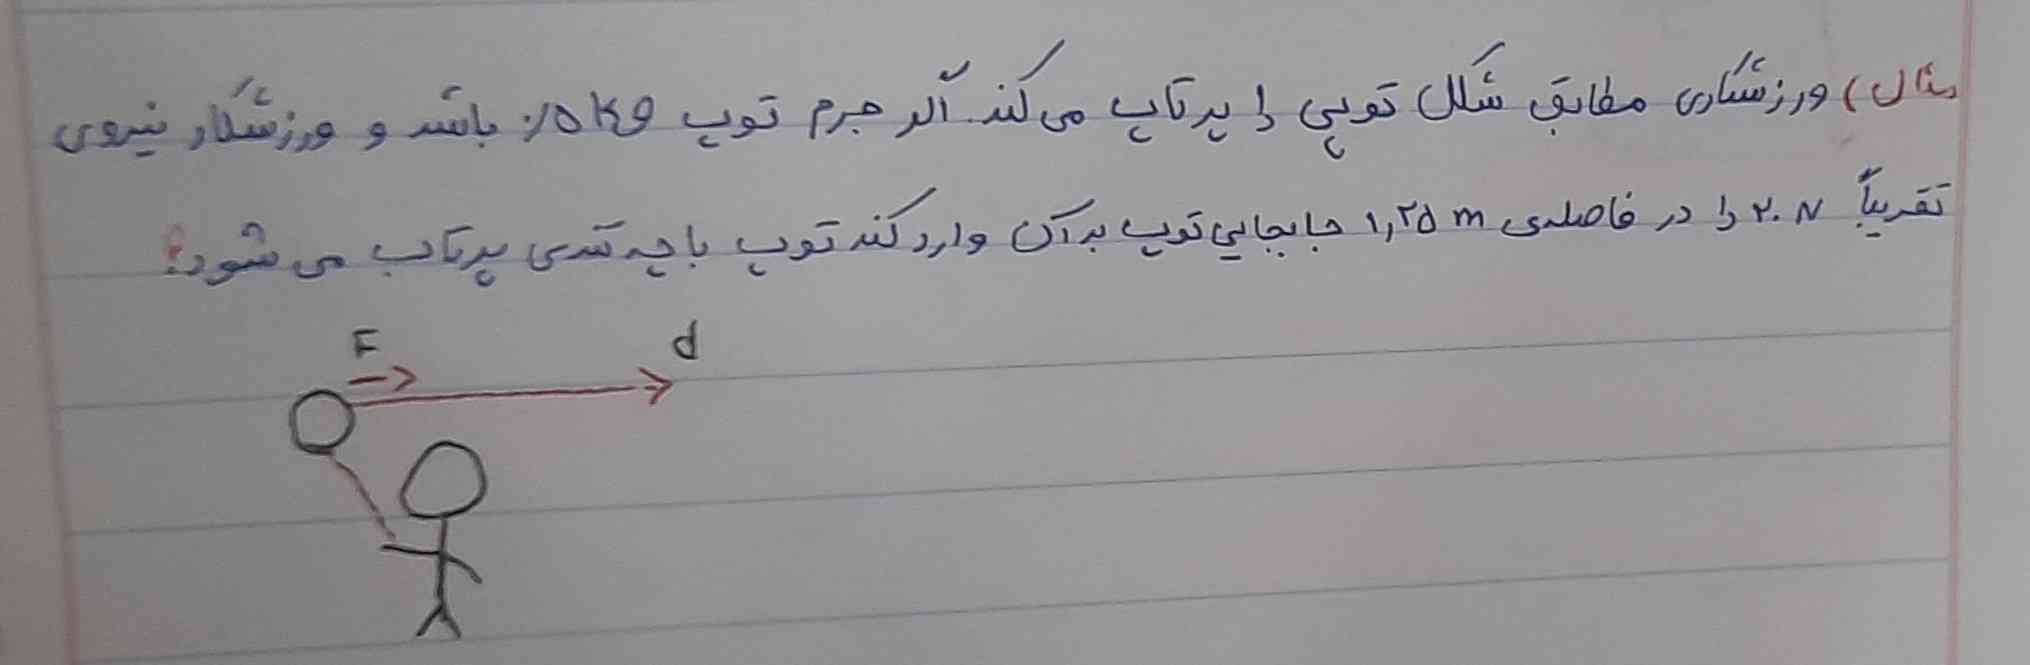 مثال) ورزشکاری مطابق شکل توپی را پرتاپ می کند. اگر جرم توپ ۰/۵ kg باشد و ورزشکار نیروی
تقریباً ۲۰ N را در فاصله‌ی ۱,۲۵ m جابجایی توپ به آن وارد کند توپ با چه تندی پرتاب می شود؟
F
d